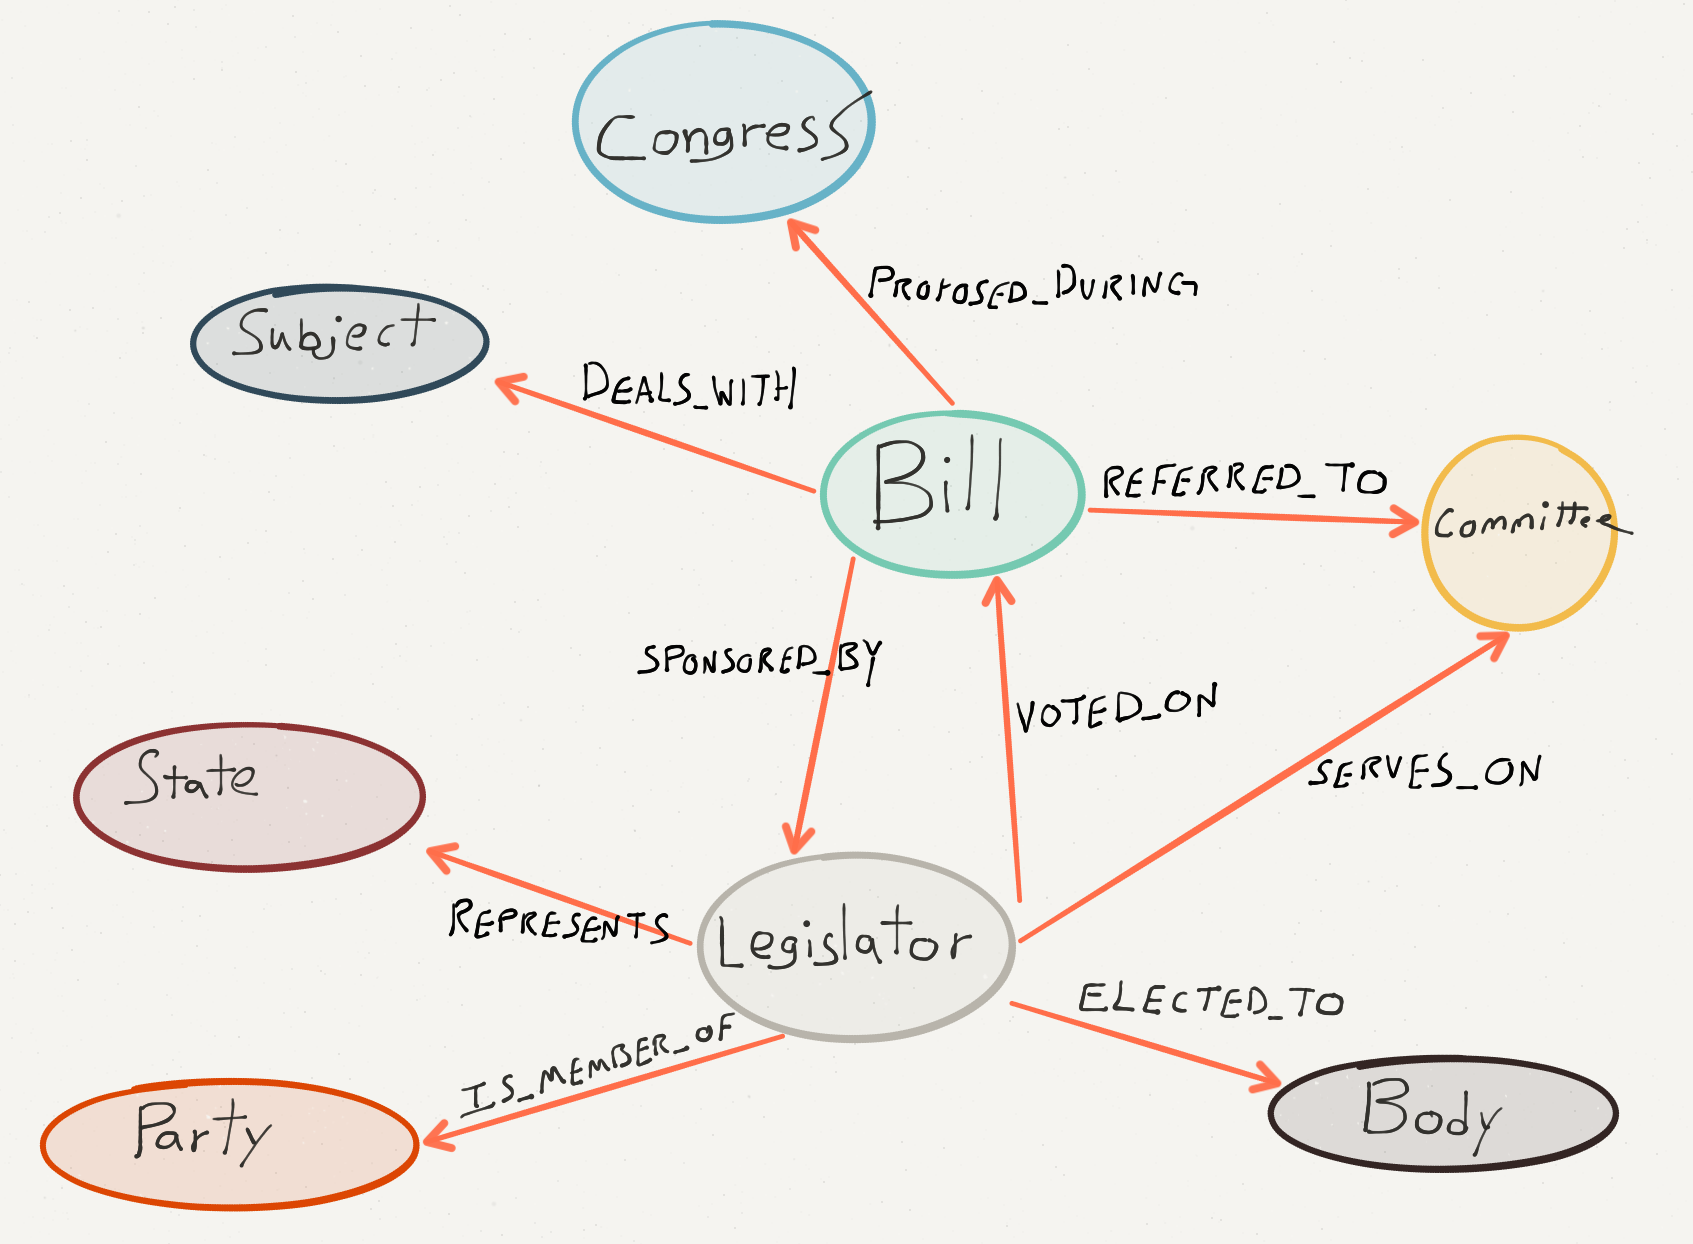 Congress
PROPOSED_DURING
Subject
DEALS_WITH
Bill
REFERRED_TO
Committee
SPONSORED_BY
VOTED_ON
State
SERVES_ON
REPRESENTS
Legislator
ELECTED_TO
IS_MEMBER_OF
Party
Body